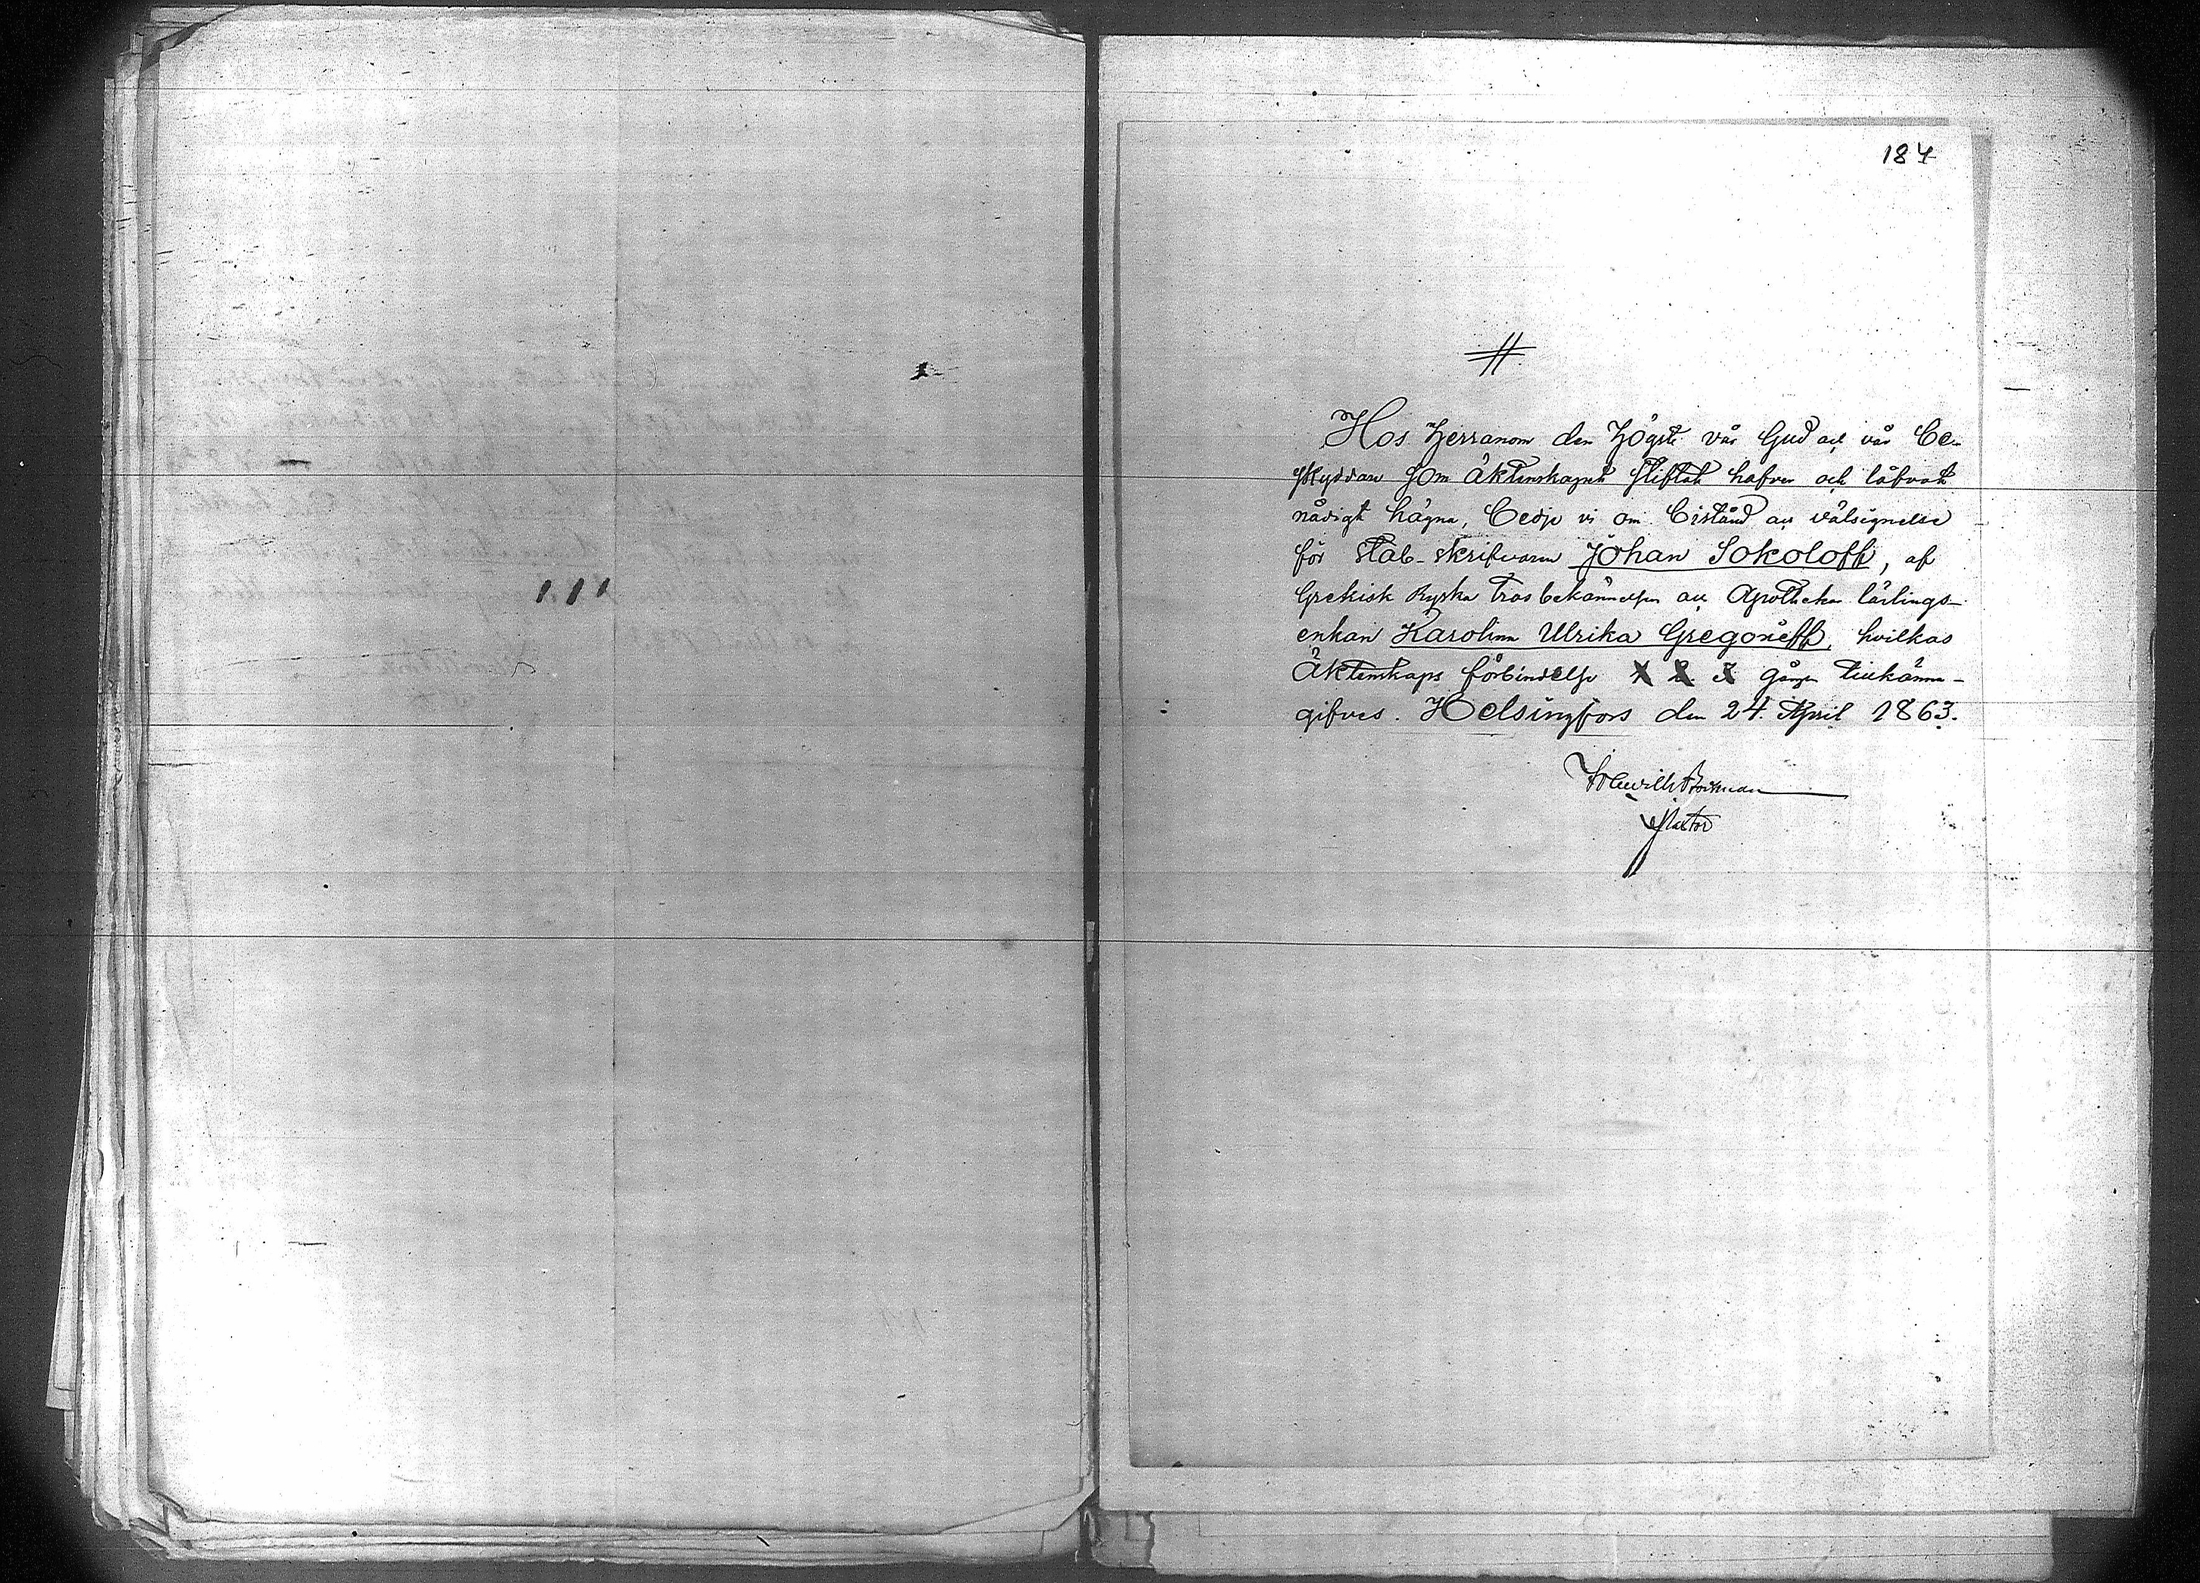 184
Hos Herranom den Högste vår Gud och vår Be-
skyddare som äktenskapet stiftat hafver och låfvat
nådigt hägna, bedje vi om bistånd och välsignelse
för Stab-skrifvaren Johan Sokoloff, af
Grekisk Ryska trosbekännelsen och Apothekar lärlings-
enkan Karolina Ulrika Gregoreff, hvilkas
Äktenskaps förbindelse gången tillkänna-
gifves. Helsingfors den 24. April 1863.
Pastor